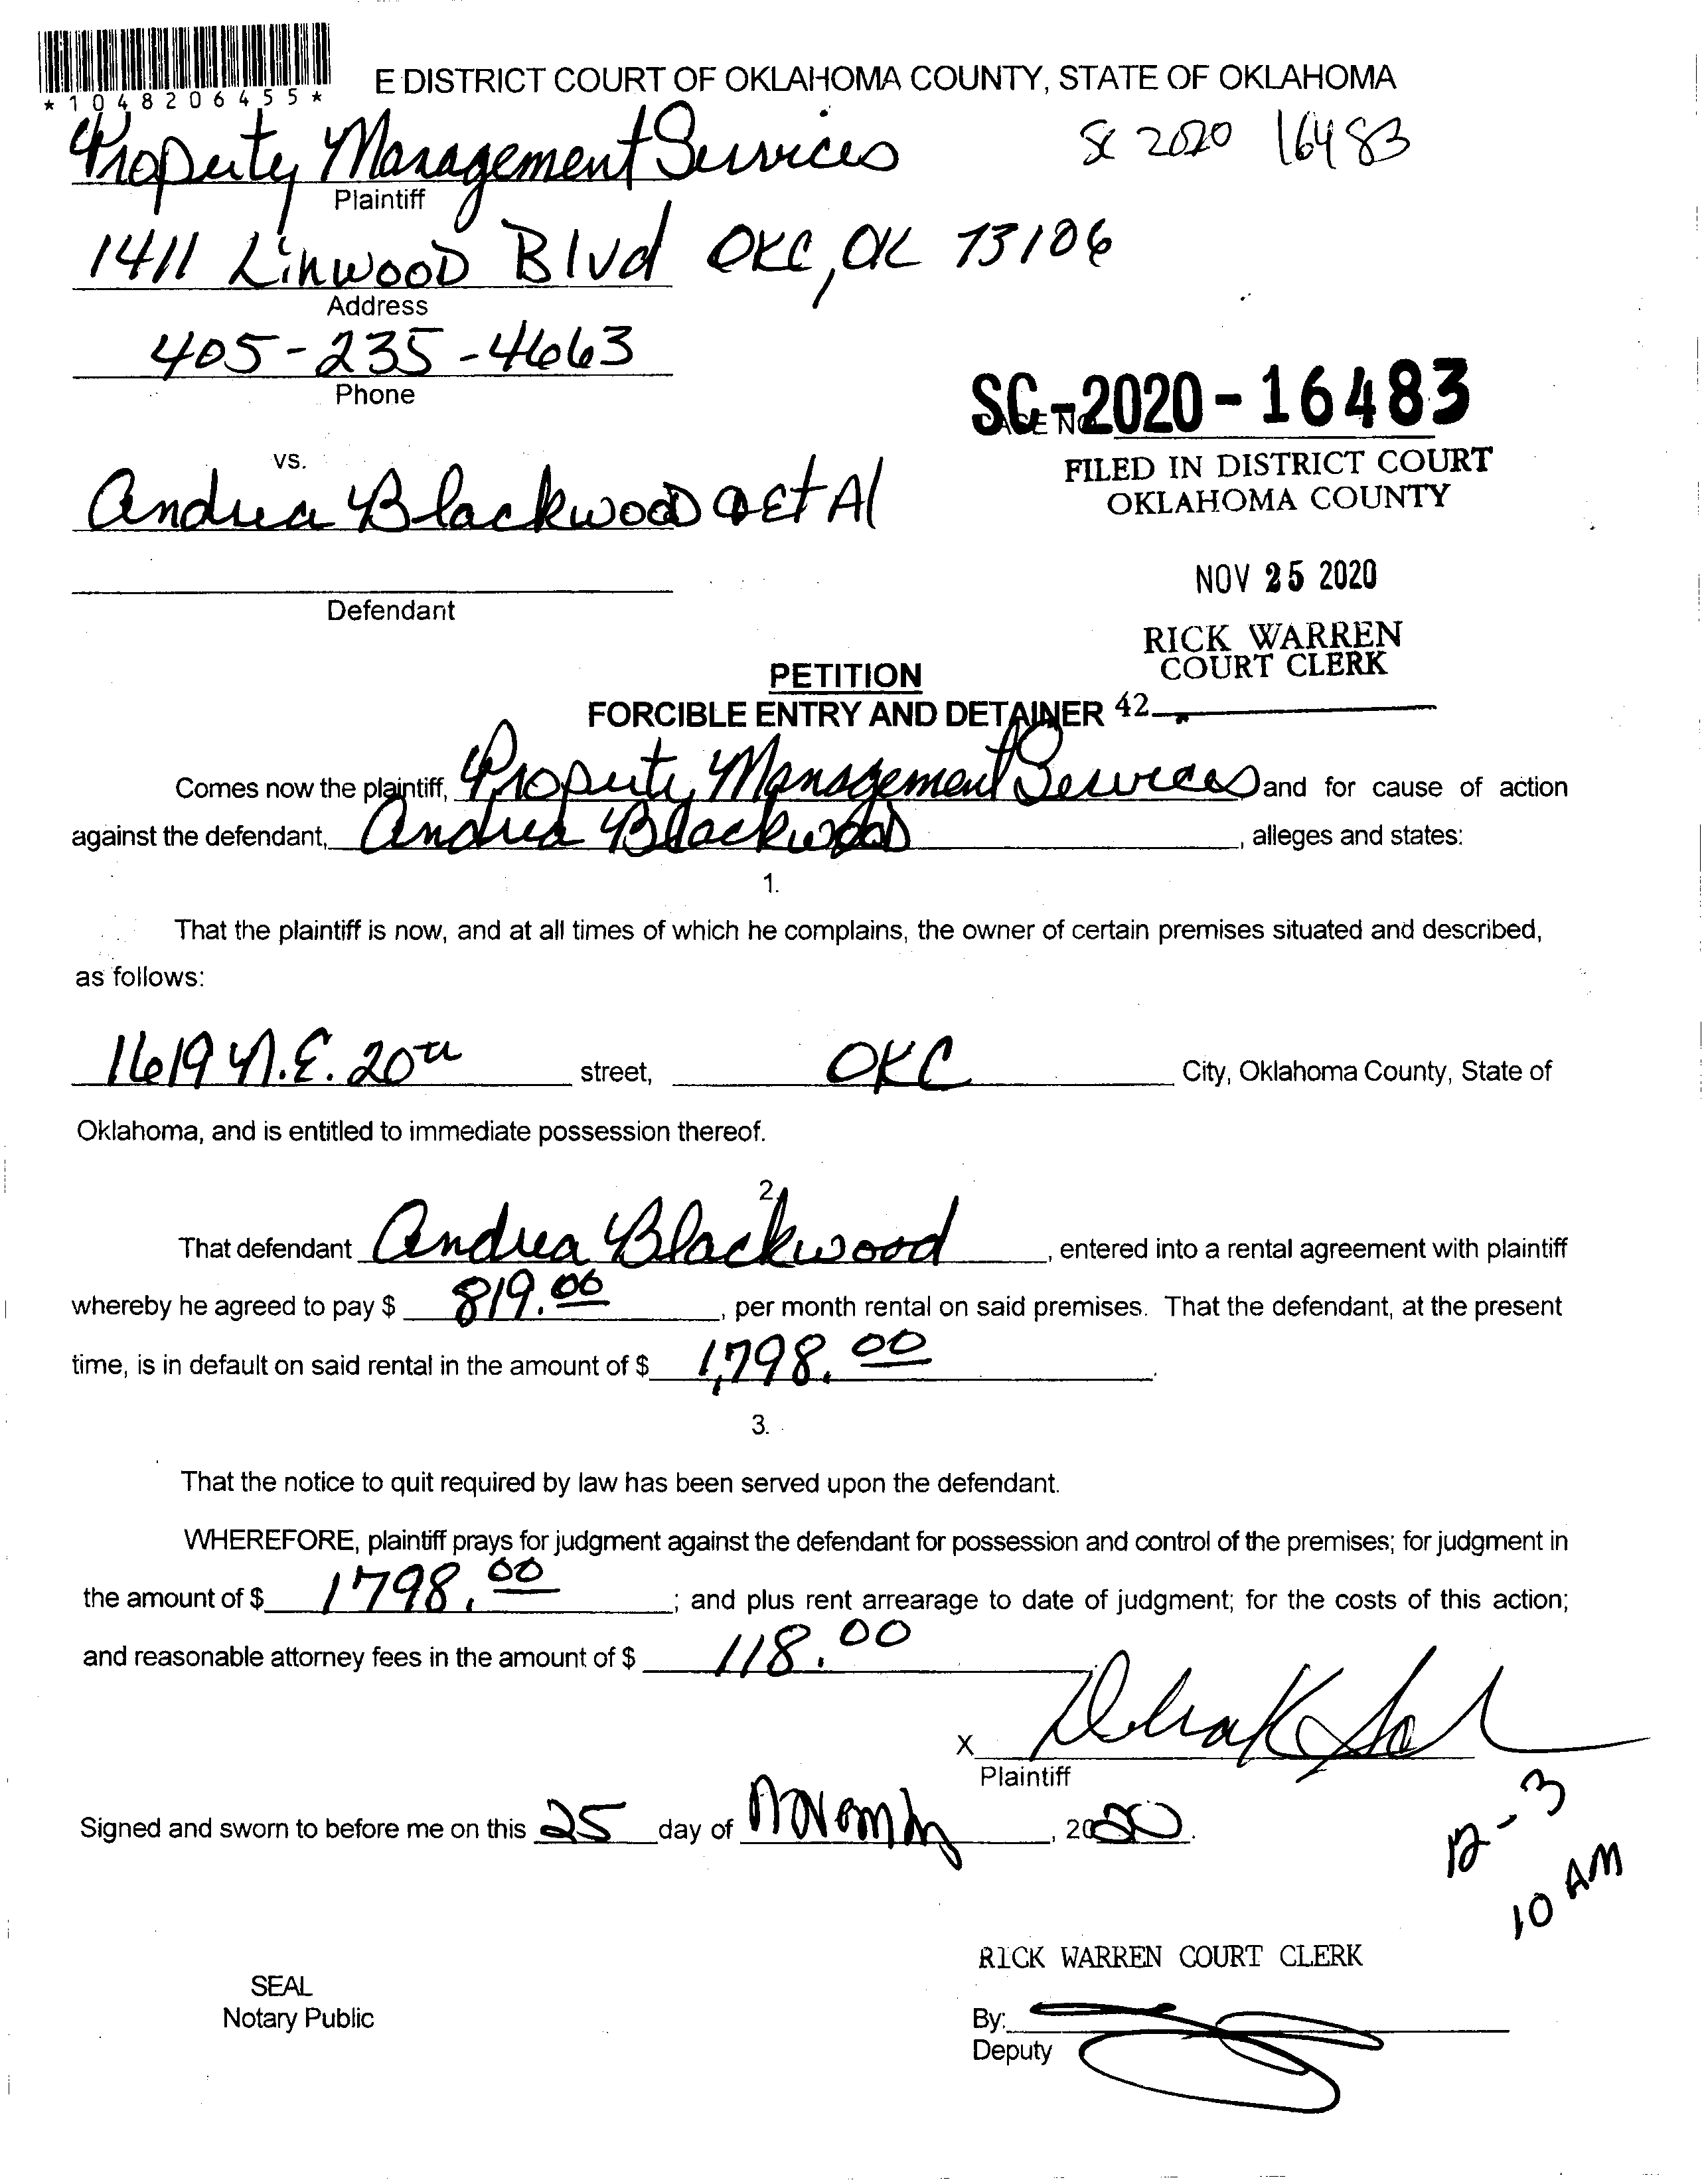 *1048206455*
E DISTRICT COURT OF OKLAHOMA COUNTY, STATE OF OKLAHOMA
Property Management Services
SC 2020 16483
Plaintiff
1411 Linwood Blvd OKC, OK 73106
Address
405-235-4663
Phone
SC-2020-16483
CASE NO.
FILED IN DISTRICT COURT
OKLAHOMA COUNTY
vs.
Andrea Blackwood et Al
NOV 25 2020
Defendant
RICK WARREN
COURT CLERK
PETITION
FORCIBLE ENTRY AND DETAINER 42
Comes now the plaintiff, Property Management Services and for cause of action
against the defendant, Andrea Blackwood, alleges and states:
1.
That the plaintiff is now, and at all times of which he complains, the owner of certain premises situated and described,
as follows:
1619 N.E. 20th street, OKC City, Oklahoma County, State of
Oklahoma, and is entitled to immediate possession thereof.
2.
That defendant Andrea Blackwood, entered into a rental agreement with plaintiff
whereby he agreed to pay $ 819.00, per month rental on said premises. That the defendant, at the present
time, is in default on said rental in the amount of $ 1,798.00.
3.
That the notice to quit required by law has been served upon the defendant.
WHEREFORE, plaintiff prays for judgment against the defendant for possession and control of the premises; for judgment in
the amount of $ 1798.00; and plus rent arrearage to date of judgment; for the costs of this action;
and reasonable attorney fees in the amount of $ 118.00
X
Plaintiff
Signed and sworn to before me on this 25 day of November, 2020.
12-3
10 AM
RICK WARREN COURT CLERK
SEAL
Notary Public
By:
Deputy